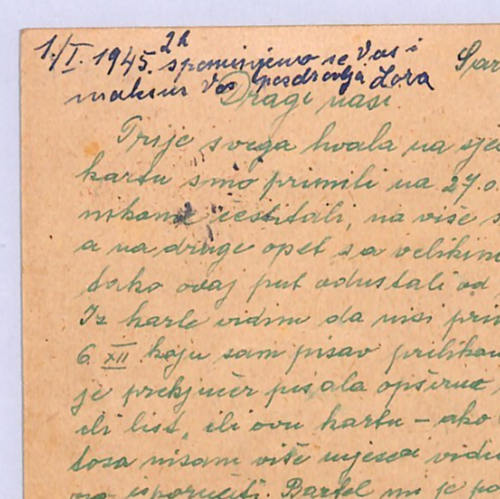 1./I. 1945. 2h spominjemo se Vas i
Vas pozdravlja Lora
Sar
Dragi nasi
Prije svega hvala na sje
kartu smo primili na 27. o
čestitali, na više s
a na druge opet sa velikim
tako ovaj put odustali od
Iz karte vidim da nisi prim
6. XII koju sam pisao prilikom
je prekjučer pisala opširno
ili list, ili ovu kartu – ako
nisam više mjeseca vidio
isporučiti. Bartol mi je po